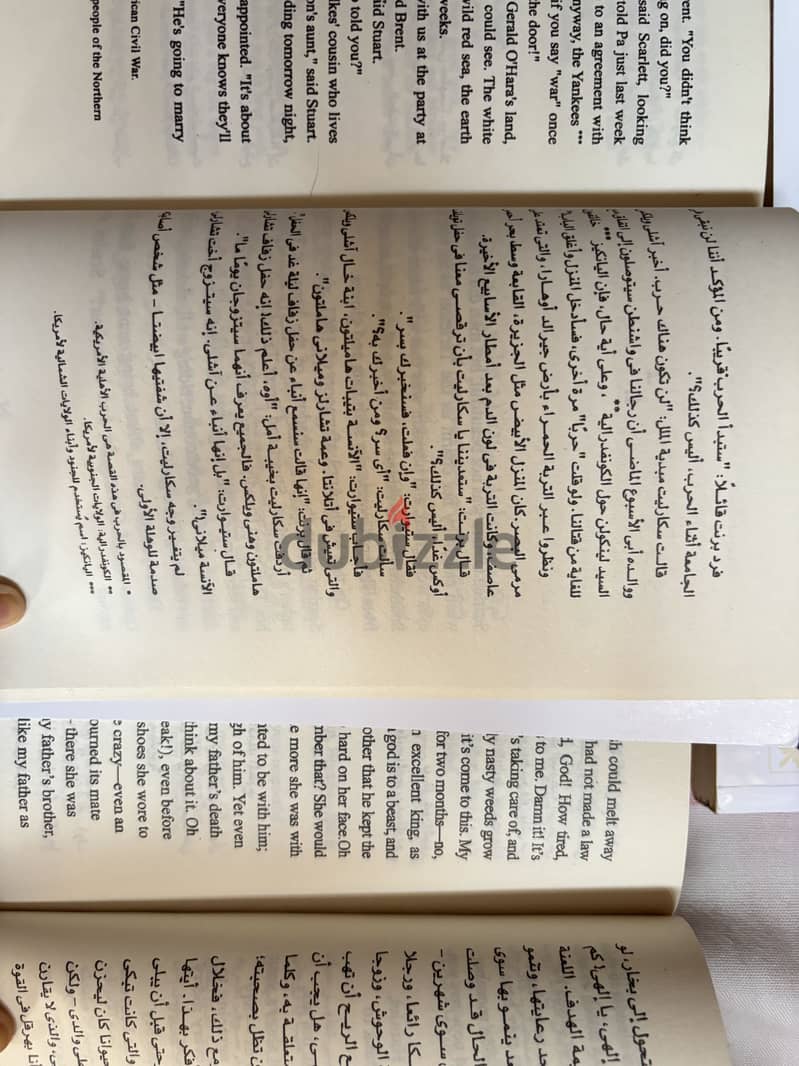 rent. "You didn't think
g on, did you?"
said Scarlett, looking
told Pa just last week
to an agreement with
nyway, the Yankees ***
if you say "war" once
the door!"
Gerald O'Hara's land,
could see. The white
wild red sea, the earth
weeks.
with us at the party at
d Brent.
aid Stuart.
told you?"
lkes' cousin who lives
on's aunt," said Stuart.
ding tomorrow night,
appointed. "It's about
veryone knows they'll
"He's going to marry
ican Civil War.
people of the Northern
فرد برنت قائلاً: "ستبدأ الحرب قريبًا. ومن المؤكد أننا لن نبقى في
الجامعة أثناء الحرب، أليس كذلك؟".
قالت سكارليت مبدية الملل: "لن تكون هناك حرب. أخبر آشلى ويلكز
ووالده أبى الأسبوع الماضى أن رجالنا فى واشنطن سيتوصلون إلى اتفاق مع
السيد لينكولن حول الكونفدرالية **، وعلى أية حال، فإن اليانكيز ***
للغاية من قتالنا. ولو قلت "حربًا" مرة أخرى، فسأدخل المنزل وأغلق الباب!"
ونظروا عبر التربة الحمراء بأرض جيرالد أوهارا، والتى تمتد على
مرمى البصر. كان المنزل الأبيض مثل الجزيرة، القابعة وسط بحر أحمر
عاصف، وكانت التربة فى لون الدم بعد أمطار الأسابيع الأخيرة.
قال برنت: "ستعديننا يا سكارليت بأن ترقصى معنا فى حفل تويلف
أوكس غدًا، أليس كذلك؟".
فقال ستيورت: "وإن فعلت، فسنخبرك بسر".
سألت سكارليت: "أى سر؟ ومن أخبرك به؟".
فأجاب ستيوارت: "الآنسة بتيبات هاميلتون، ابنة خال آشلى ويلكز
والتى تعيش فى أتلانتا. وعمة تشارلز وميلانى هاملتون".
ثم قال برنت: "إنها قالت سنسمع أنباء عن حفل زفاف ليلة غد فى الحفل"
أردفت سكارليت بخيبة أمل: "أوه، أعلم ذلك! إنه حفل زفاف تشارلز
هاملتون وهنى ويلكس. فالجميع يعرف أنهما سيتزوجان يومًا ما".
قال ستيوارت: "بل إنها أنباء عن آشلى. إنه سيتزوج أخت تشارلز
الآنسة ميلانى!".
لم يتغير وجه سكارليت، إلا أن شفتيها ابيضتا - مثل شخص أصابته
صدمة للوهلة الأولى.
* المقصود بالحرب فى هذه القصة هى الحرب الأهلية الأمريكية.
** الكونفدرالية: الولايات الجنوبية لأمريكا.
*** اليانكيز: اسم يُستخدم للجنود وأبناء الولايات الشمالية لأمريكا.
dubizzle
sh could melt away
had not made a law
l, God! How tired,
to me. Damn it! It's
's taking care of, and
ly nasty weeds grow
it's come to this. My
for two months—no,
n excellent king, as
god is to a beast, and
other that he kept the
hard on her face.Oh
mber that? She would
e more she was with
nted to be with him;
gh of him. Yet even
my father's death
think about it. Oh
eak!), even before
shoes she wore to
e crazy—even an
ourned its mate
- there she was
ny father's brother,
like my father as
تحول إلى بخار، لو
إلهى، يا إلهى! كم
مة الهدف. اللعنة
حد رعايتها، وتمو
مد ينمو بها سوى
الحال قد وصلت
سوى شهرين -
كا رائعا، ورجلا
الوحوش، وزوجا
ع الريح أن تهب
ى، هل يجب أن
ستعلقة به، وكلما
ن تظل بصحبته؛
مع ذلك، فخلال
فكر بهذا. أيتها
حتى قبل أن يبلى
والتى كانت تبكى
حيوانا كان ليحزن
على والدى - ولكن
ى، والذى لا يقارن
نا بهرقل فى القوة